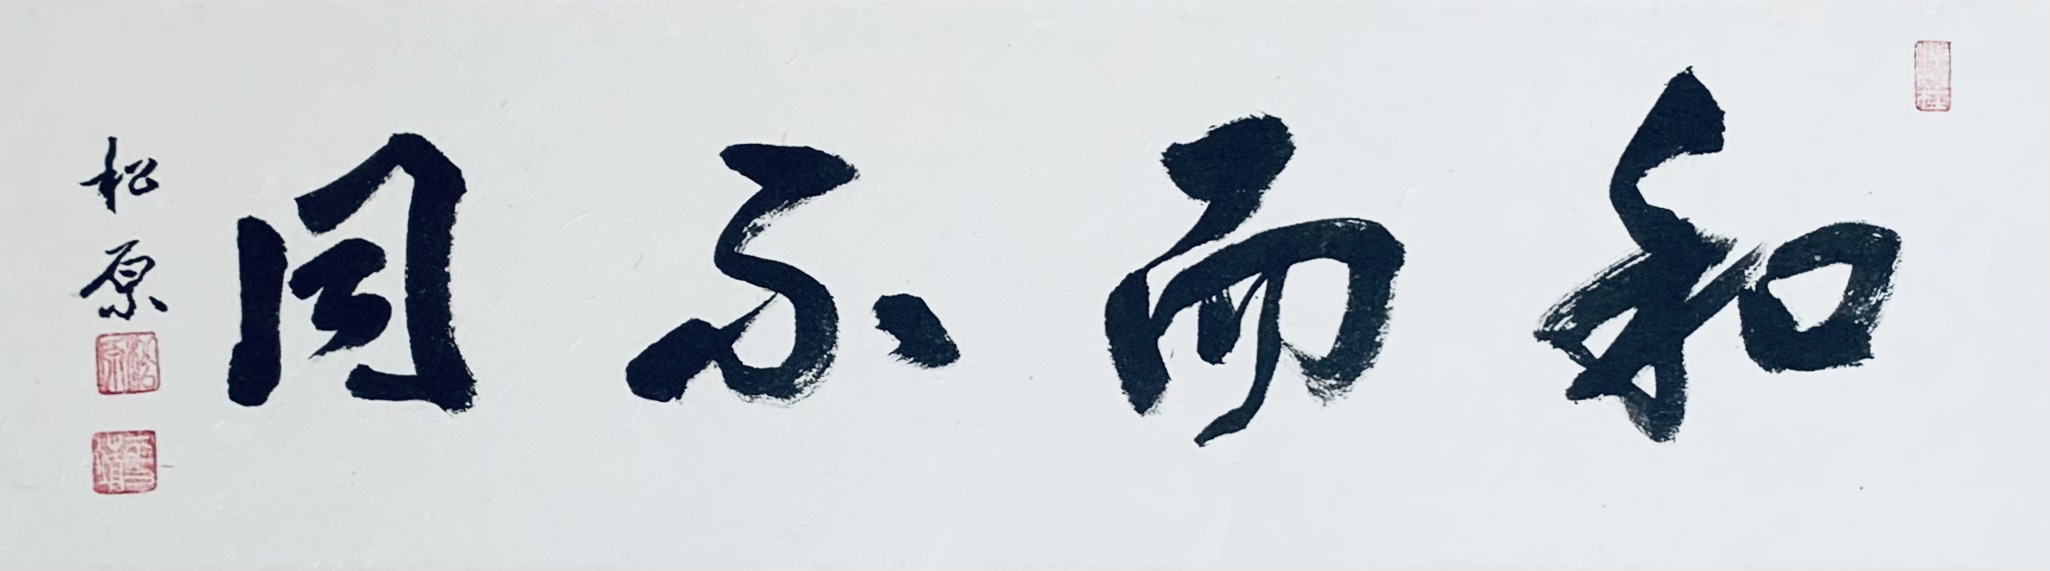 和而不同
松原